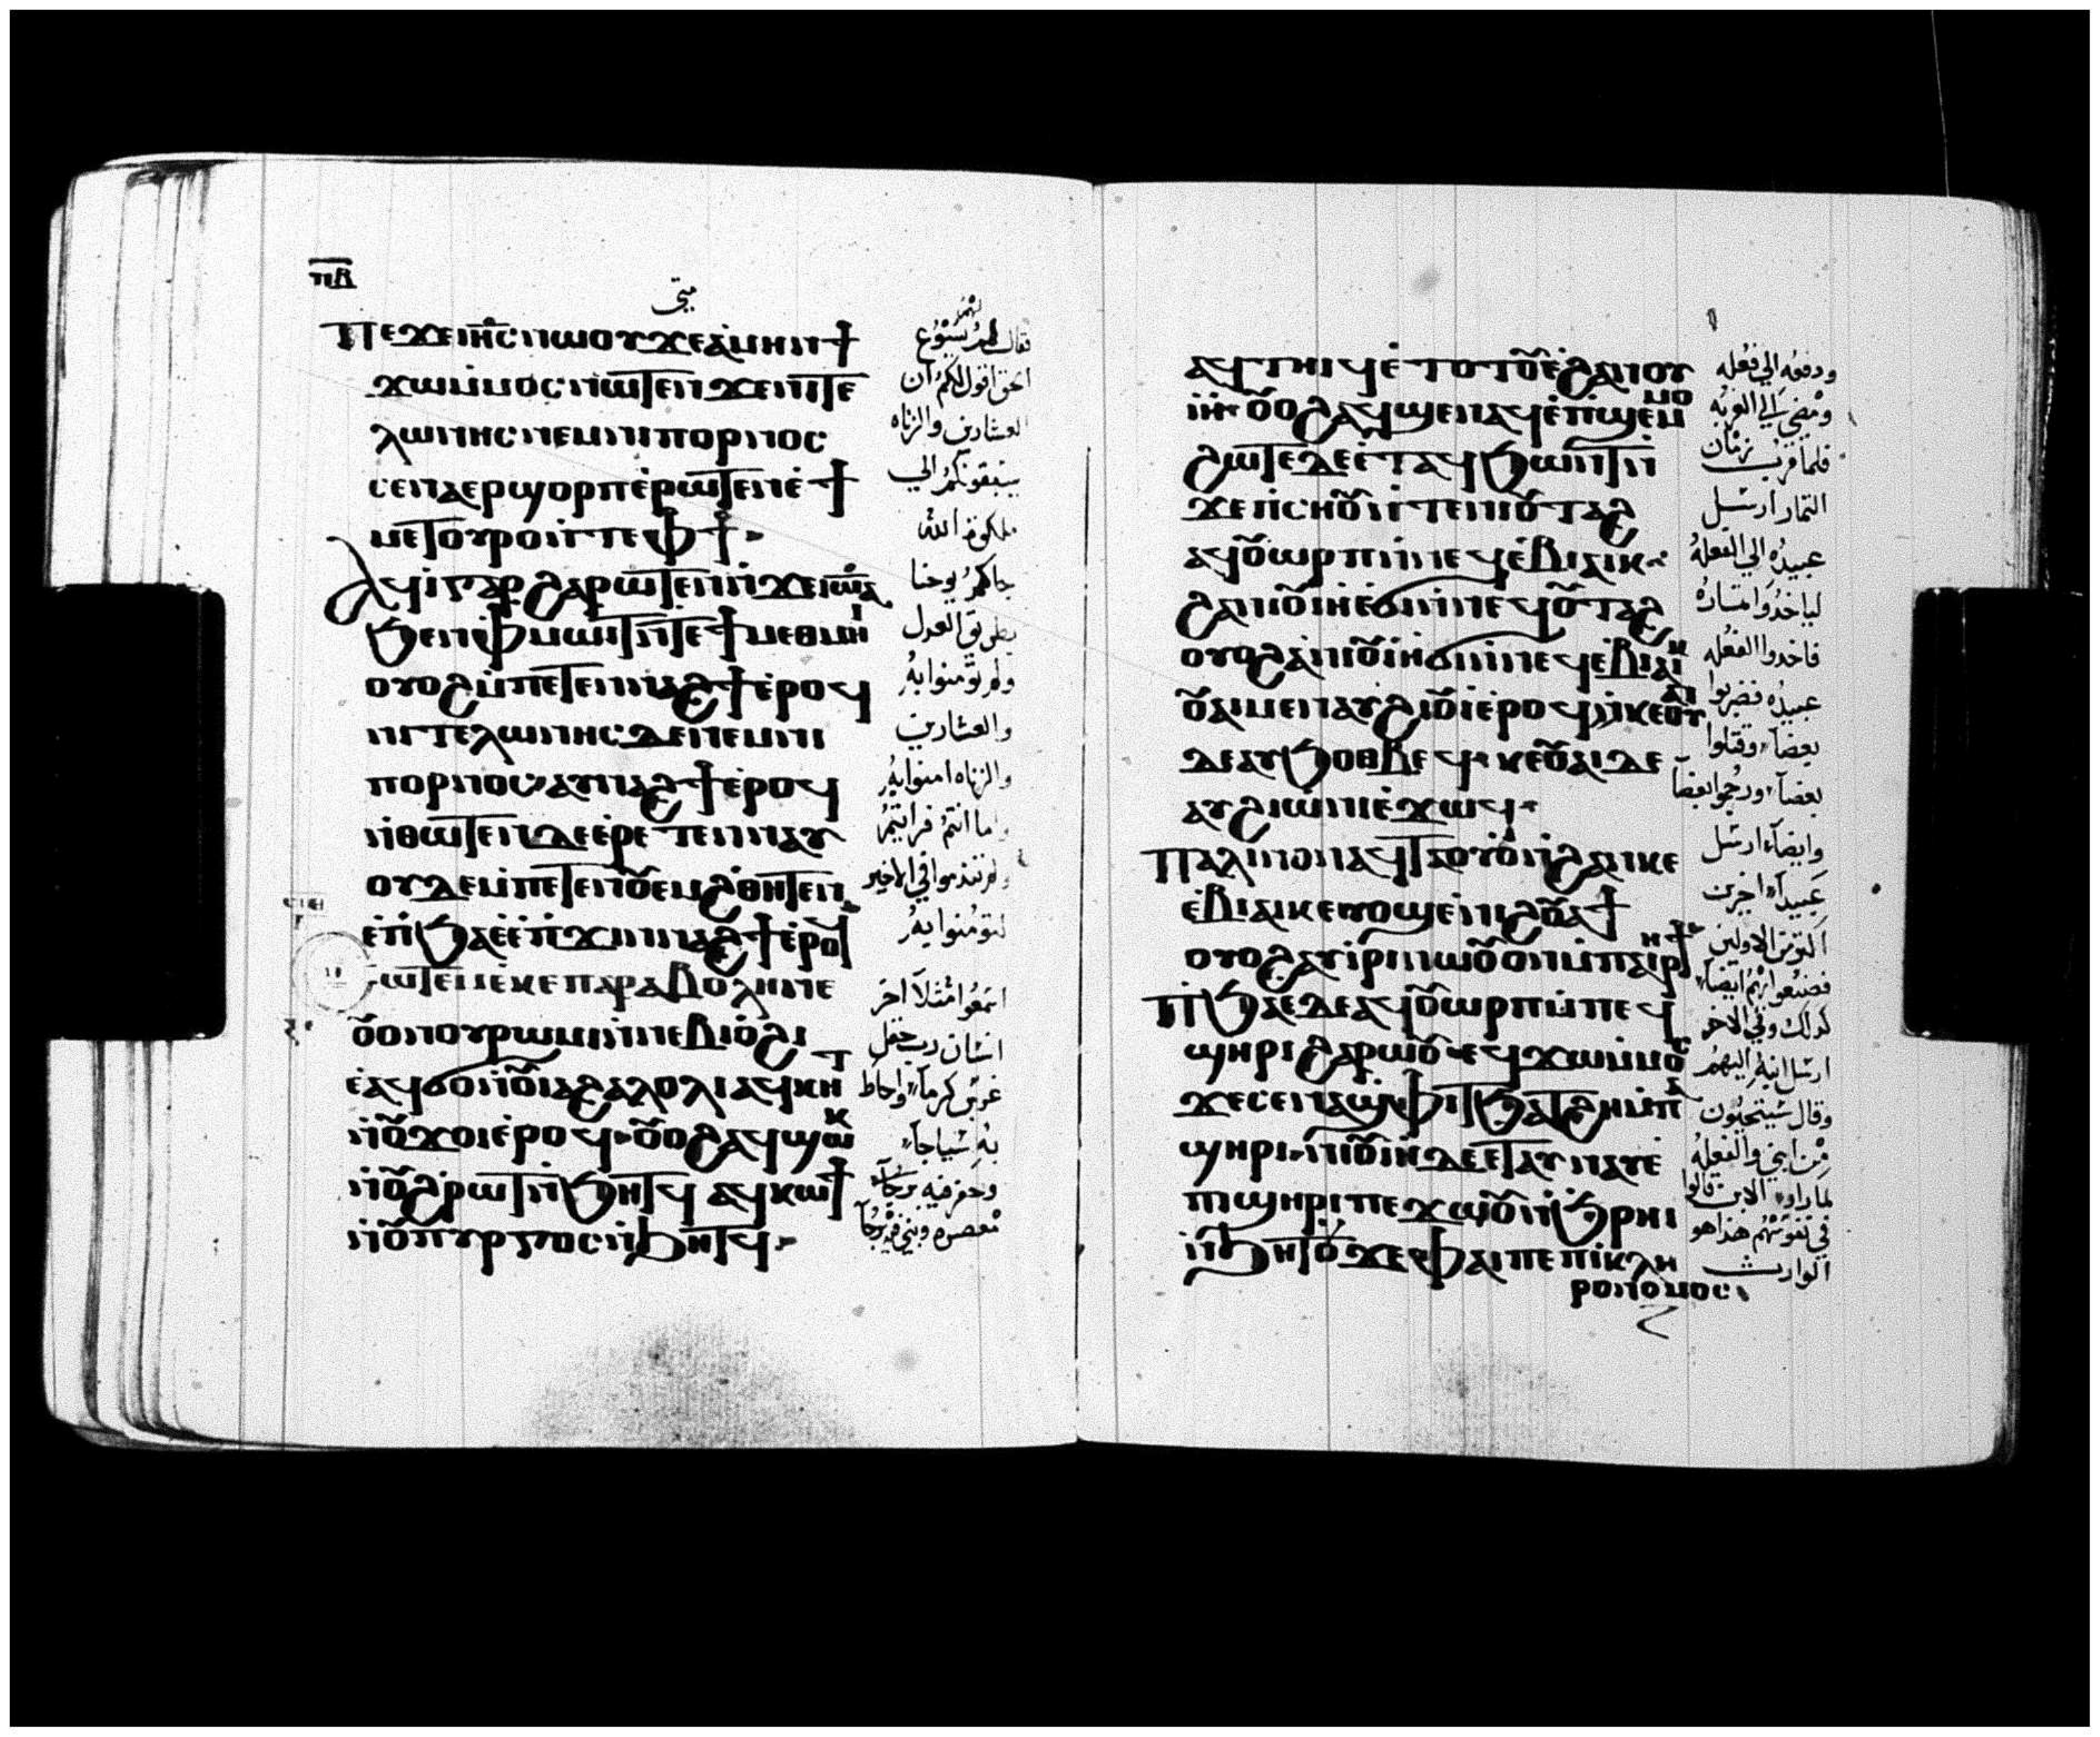 ⲡ̅ⲃ̅
متى
Ⲡⲉϫⲉⲓⲏ̅ⲥ̅ⲛⲱⲟⲩϫⲉⲁ̀ⲙⲏⲛϯ
ϫⲱⲙ̀ⲙⲟⲥⲛⲱⲧⲉⲛϫⲉⲛⲓⲧⲉ
ⲗⲱⲛⲏⲥⲛⲉⲙⲛⲓⲡⲟⲣⲛⲟⲥ
ⲥⲉⲛⲁⲉⲣϣⲟⲣⲡⲉ̀ⲣⲱⲧⲉⲛⲉ̀ϯ
ⲙⲉⲧⲟⲩⲣⲟⲛ̀ⲧⲉⲫϯ
ⲁϥⲓ̀ⲅⲁⲣϩⲁⲣⲱⲧⲉⲛⲛ̀ϫⲉⲓⲱ̅ⲁ̅
ϧⲉⲛⲫⲙⲱⲓⲧⲛ̀ⲧⲉϯⲙⲉⲑⲙⲏⲓ
ⲟⲩⲟϩⲙ̀ⲡⲉⲧⲉⲛⲛⲁϩϯⲉ̀ⲣⲟϥ
ⲛⲓⲧⲉⲗⲱⲛⲏⲥⲇⲉⲛⲉⲙⲛⲓ
ⲡⲟⲣⲛⲟⲥⲁⲩⲛⲁϩϯⲉ̀ⲣⲟϥ
ⲛ̀ⲑⲱⲧⲉⲛⲇⲉⲉ̀ⲣⲉⲧⲉⲛⲛⲁⲩ
ⲟⲩⲇⲉⲙ̀ⲡⲉⲧⲉⲛⲟⲩⲉⲙϩ̀ⲑⲏⲧⲉⲛ
ⲉ̀ⲡ̀ϧⲁⲉ̀ⲉ̀ⲡ̀ϫⲓⲛⲛⲁϩϯⲉ̀ⲣⲟϥ
ⲥⲱⲧⲉⲙⲉ̀ⲕⲉⲡⲁⲣⲁⲃⲟⲗⲏⲛⲉ
ⲟⲩⲟⲛⲟⲩⲣⲱⲙⲓⲛ̀ⲛⲉⲃⲓⲟϩⲓ
ⲉ̀ⲁϥϭⲟⲛ̀ⲟⲩⲓⲁϩⲁⲗⲟⲗⲓⲁϥⲕⲏⲧ
ⲛ̀ⲟⲩϫⲟⲓⲉ̀ⲣⲟϥⲟⲩⲟϩⲁϥϣⲱⲕ
ⲛ̀ⲟⲩϩ̀ⲣⲱⲧⲛ̀ϧⲏⲧϥ ⲁϥⲕⲱϯ
ⲛ̀ⲟⲩⲡⲩⲣⲅⲟⲥⲛ̀ϧⲏⲧϥ
فقال لهم يسوع
الحق اقول لكم ان
العشارين والزناه
يسبقونكم الي
ملكوة الله
جاكم يوحنا
بطريق العدل
ولم تؤمنوا به
والعشارين
والزناه امنوا به
واما انتم فرايتم
ولم تندموا في الاخير
لتؤمنوا به
اسمعوا مثلا اخر
انسان رب حقل
غرس كرما واحاط
به سياجا
وحفر فيه
معصره وبني فيه برجا
ⲁϥⲧⲏⲓϥⲉ̀ⲧⲟⲧⲟⲩⲉ̀ϩⲁⲛⲟⲩ
ⲓⲏⲟⲩⲟϩⲁϥϣⲉⲛⲁϥⲉ̀ⲡ̀ϣⲉⲙⲙⲟ
ϩⲱⲧⲉⲇⲉⲉ̀ⲧⲁϥϧⲱⲛⲧⲛ̀
ϫⲉⲡ̀ⲥⲏⲟⲩⲛ̀ⲧⲉⲛⲓⲟⲩⲧⲁϩ
ⲁϥⲟⲩⲱⲣⲡⲛ̀ⲛⲉϥⲉ̀ⲃⲓⲁⲓⲕ
ϩⲁⲛⲓⲟⲩⲓⲏⲉ̀ϭⲓⲛ̀ⲛⲉϥⲟⲩⲧⲁϩ
ⲟⲩⲟϩⲁⲛⲓⲟⲩⲓⲏϭⲓⲛ̀ⲛⲉϥⲉ̀ⲃⲓⲁⲓⲕ
ⲟⲩⲁⲓⲙⲉⲛⲁⲩϩⲓⲟⲩⲓⲉ̀ⲣⲟϥⲛ̀ⲕⲉⲟⲩⲁⲓ
ⲇⲉⲁⲩϧⲟⲑⲃⲉϥⲕⲉⲟⲩⲁⲓⲇⲉ
ⲁⲩϩⲓⲱ̀ⲛⲓⲉ̀ϫⲱϥ
Ⲡⲁⲗⲓⲛⲟⲛⲁϥⲧⲁⲟⲩⲟ̀ⲛ̀ϩⲁⲛⲕⲉ
ⲉ̀ⲃⲓⲁⲓⲕⲉⲩⲟϣⲉ̀ⲛⲓϩⲟⲩⲁϯ
ⲟⲩⲟϩⲁⲩⲓ̀ⲣⲓⲛⲱⲟⲩⲟⲛⲙ̀ⲡⲁⲓⲣⲏϯ
ⲡ̀ϧⲁⲉⲇⲉⲁϥⲟⲩⲱⲣⲡⲙ̀ⲡⲉϥ
ϣⲏⲣⲓϩⲁⲣⲱⲟⲩⲉϥϫⲱⲙ̀ⲙⲟⲥ
ϫⲉⲥⲉⲛⲁϣⲫⲓⲧϧⲁⲧϩⲏⲙ̀ⲡⲁ
ϣⲏⲣⲓⲛⲓⲟⲩⲓⲏⲇⲉⲉⲧⲁⲩⲛⲁⲩⲉ̀
ⲡⲓϣⲏⲣⲓⲡⲉϫⲱⲟⲩⲛ̀ϧ̀ⲣⲏⲓ
ⲛ̀ϧⲏⲧⲟⲩϫⲉⲫⲁⲓⲡⲉⲡⲓⲕⲗⲏ
ⲣⲟⲛⲟⲙⲟⲥ
ودفعه الي فعله
ومضي الي الغربه
فلما قرب زمان
الثمار ارسل
عبيده الي الفعله
لياخذوا ثماره
فاخدوا الفعله
عبيده فضربوا
بعضا وقتلوا
بعضا ورجموا بعضا
وايضا ارسل
عبيدا اخرين
اكثر من الاولين
فصنعوا بهم ايضا
كذلك وفي الاخر
ارسل ابنه اليهم
وقال سيستحيون
من ابني والفعله
لما راوا الابن قالوا
في نفوسهم هذا هو
الوارث